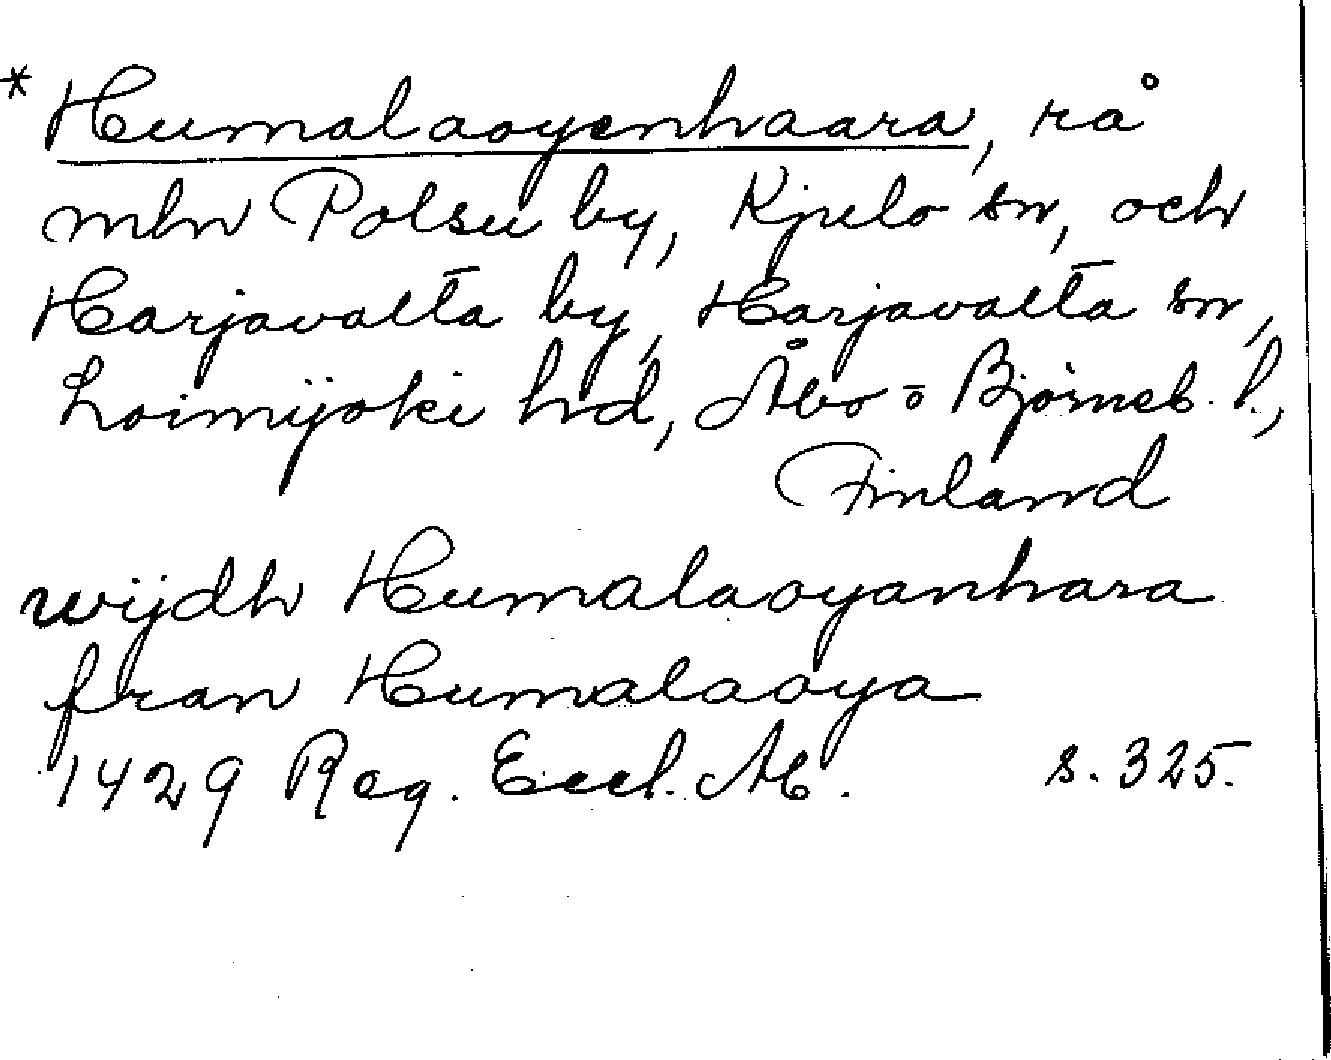 * Humalaoyenhaara, rå
mln Polsu by, Kjulo sn, och
Harjavalta by, Harjavalta sn,
Loimijoki hd, Åbo o Björneb. l.,
Finland
wijdh Humalaoyanhara
fran Humalaoya
1429 Reg. Eccl. Ab. s. 325.